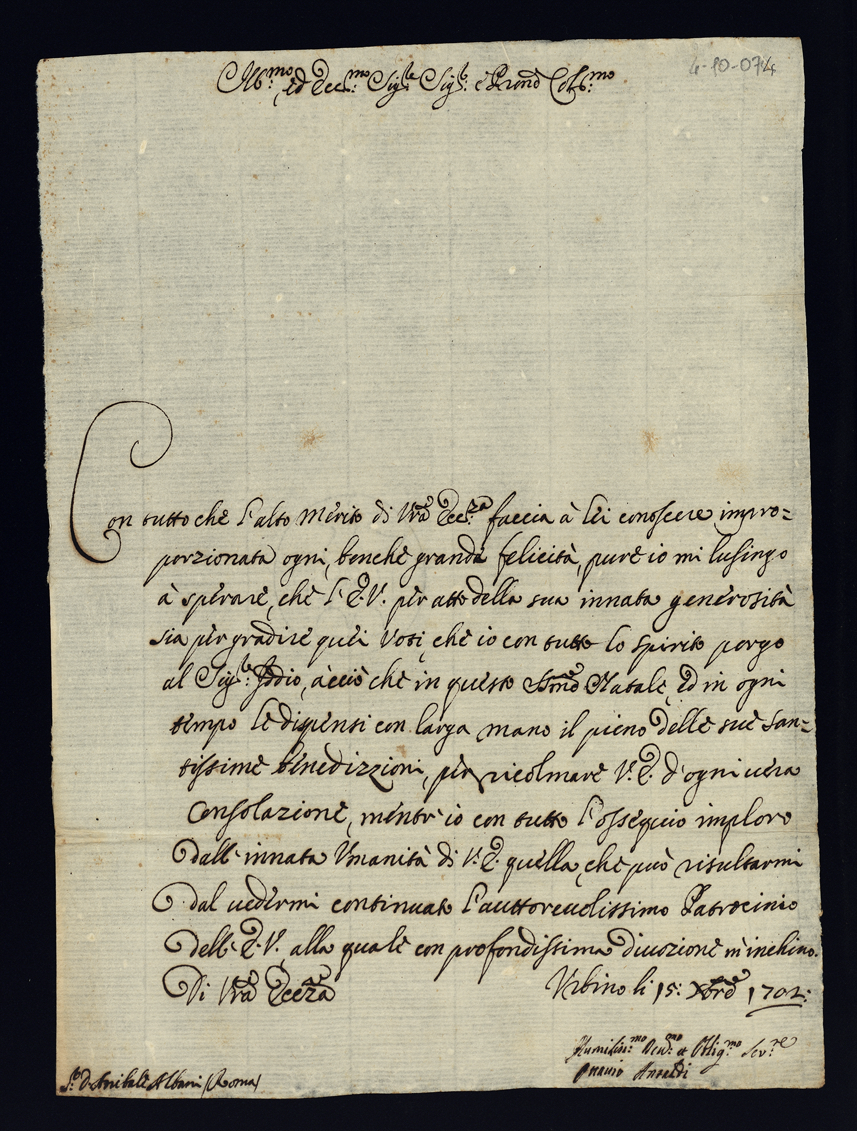 4-10-074
Ill.mo, ed Ecc.mo Sig.re Sig.r e Prone Col.mo
Con tutto che l'alto Merito di Vra Ecc.za faccia à lei conoscere impro=
porzionata ogni, benche grande felicità, pure io mi lusingo
à sperare, che l'E.V. per atto della sua innata generosità
sia per gradire quei Voti, che io con tutto lo spirito porgo
al Sig.re Iddio, acciò che in questo Smo Natale, ed in ogni
tempo le dispensi con larga mano il pieno delle sue San=
tissime benedizzioni, per ricolmare V.E. d'ogni vera
Consolazione, mentr'io con tutto l'ossequio imploro
dall'innata Vmanità di V.E. quella, che può risultarmi
dal uedermi continuato l'auttoreuolissimo Patrocinio
dell'E.V., alla quale con profondissima diuozione m'inchino.
Di Vra Eccza
Vrbino li 15: Xbre 1702:
Humiliss.mo Deu.mo et Oblig.mo Ser.re
S.r D. Anibale Albani (Roma)